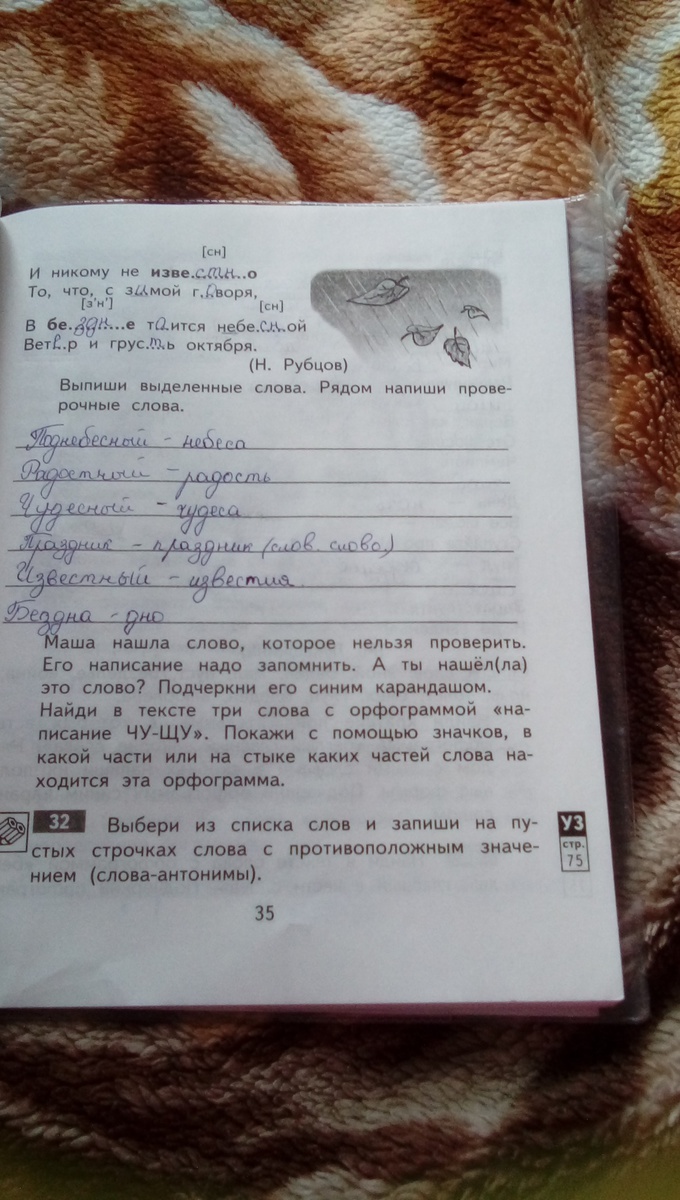 [сн]
И никому не изве.стн..о
То, что, с зимой г.оворя,
[з'н'] [сн]
В бе.здн...е таится небе.сн.ой
Вете.р и грус.т.ь октября.
(Н. Рубцов)
Выпиши выделенные слова. Рядом напиши прове-
рочные слова.
Поднебесный - небеса
Радостный - радость
Чудесный - чудеса
Праздник - праздник (слов. слово.)
Известный - известия
Бездна - дно
Маша нашла слово, которое нельзя проверить.
Его написание надо запомнить. А ты нашёл(ла)
это слово? Подчеркни его синим карандашом.
Найди в тексте три слова с орфограммой «на-
писание ЧУ-ЩУ». Покажи с помощью значков, в
какой части или на стыке каких частей слова на-
ходится эта орфограмма.
32 Выбери из списка слов и запиши на пу-
стых строчках слова с противоположным значе-
нием (слова-антонимы).
УЗ
стр.
75
35